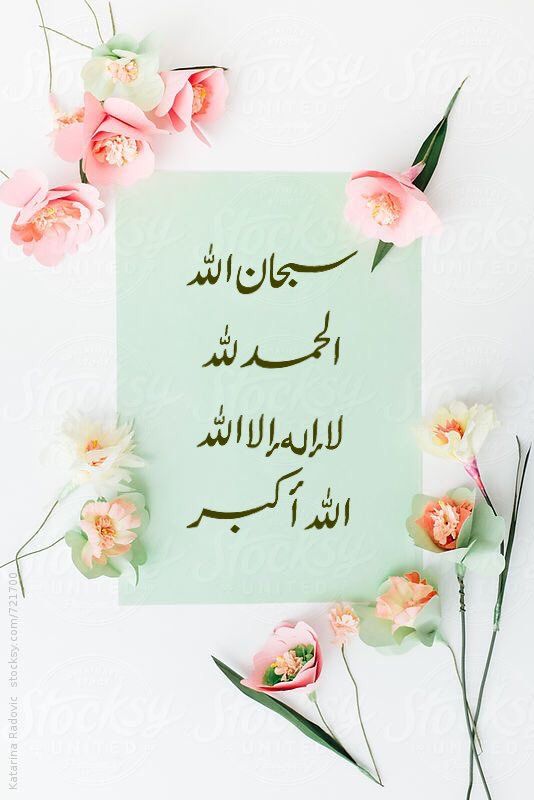 سبحان الله
الحمد لله
لا إله إلا الله
الله أكبر
Stocksy
UNITED
Katarina Radovic stocksy.com/721700